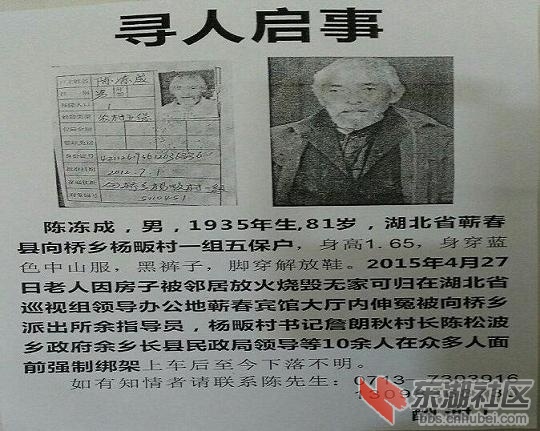 寻人启事
陈冻成
农村五保
2012.7.1
陈冻成，男，1935年生,81岁，湖北省蕲春
县向桥乡杨畈村一组五保户，身高1.65，身穿蓝
色中山服，黑裤子，脚穿解放鞋。2015年4月27
日老人因房子被邻居放火烧毁无家可归在湖北省
巡视组领导办公地蕲春宾馆大厅内伸冤被向桥乡
派出所余指导员，杨畈村书记詹朗秋村长陈松波
乡政府余乡长县民政局领导等10余人在众多人面
前强制绑架上车后至今下落不明。
如有知情者请联系陈先生：0713-7303916
东湖社区
bbs.cnhubei.com